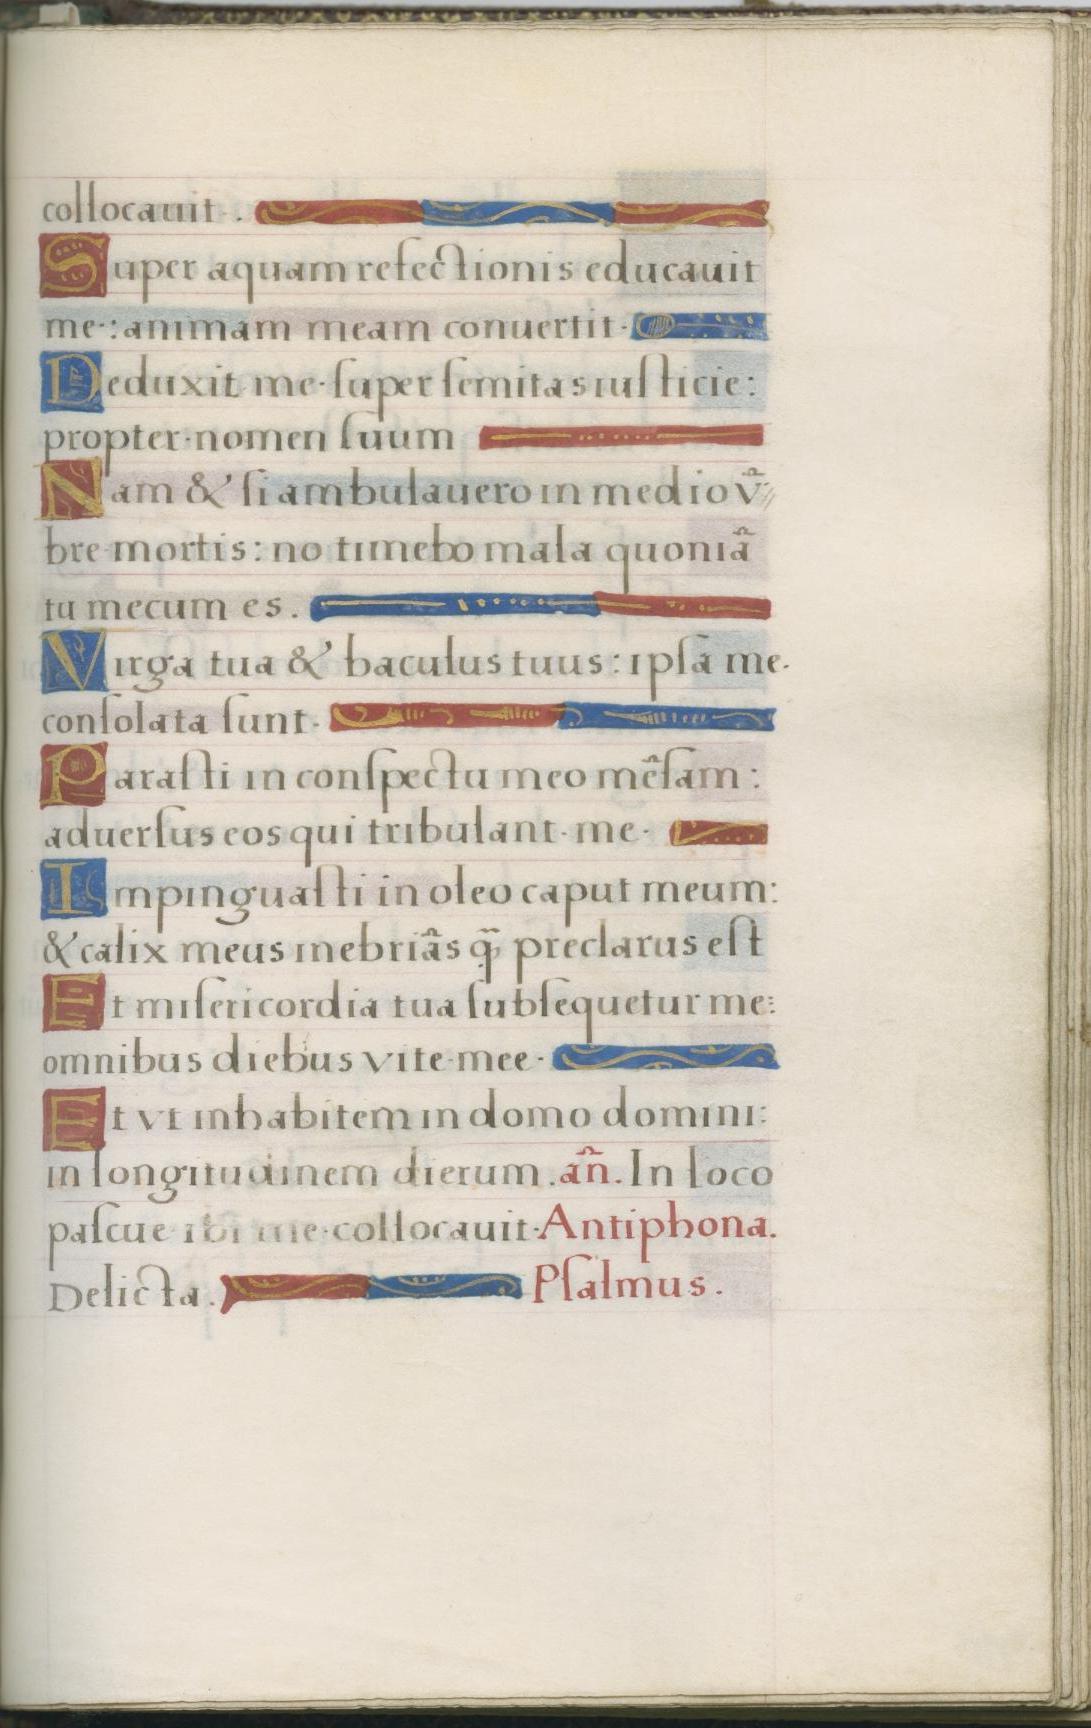 collocauit .
Super aquam refectionis educauit
me·:animam meam conuertit·
Deduxit me·ſuper ſemitas iuſticie:
propter·nomen ſuum
Nam & ſi ambulauero in medio v̄
bre mortis: no timebo mala quoniā
tu mecum es.
Virga tua & baculus tuus: ipſa me·
conſolata ſunt·
Paraſti in conſpectu meo mēſam:
aduerſus eos qui tribulant·me·
Impinguaſti in oleo caput meum:
& calix meus inebriās q̄ preclarus eſt
Et miſericordia tua ſubſequetur me:
omnibus diebus vite·mee·
Et vt inhabitem in domo domini:
in longitudinem dierum .an̄. In loco
paſcue ibi me·collocauit·Antiphona.
Delicta. Pſalmus.